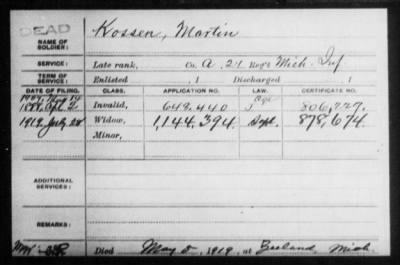 DEAD
Kossen, Martin
NAME OF SOLDIER:
SERVICE: Late rank, Co. A, 21 Reg't Mich. Inf
TERM OF SERVICE: Enlisted , 1 Discharged , 1
DATE OF FILING. CLASS. APPLICATION NO. LAW. CERTIFICATE NO.
Invalid, 649.440 806,727.
1919, July 28 Widow, 1,144,394. Sept. 878,674.
Minor,
ADDITIONAL SERVICES:
REMARKS:
Died May 2, 1919, at Zeeland, Mich.